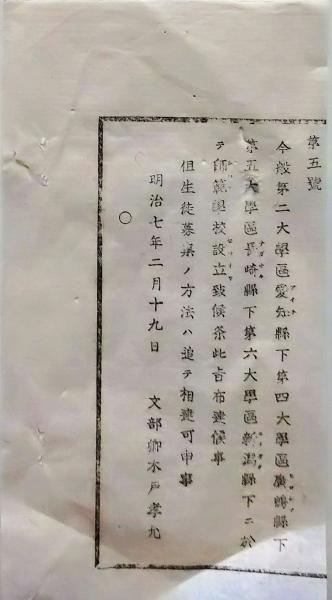 第五號
今般第二大學區愛知縣下第四大學區廣島縣下
第五大學區長崎縣下第六大學區新潟縣下ニ於
テ師範學校設立致候条此旨布達候事
但生徒募集ノ方法ハ追テ相達可申事
明治七年二月十九日 文部卿木戸孝允
○